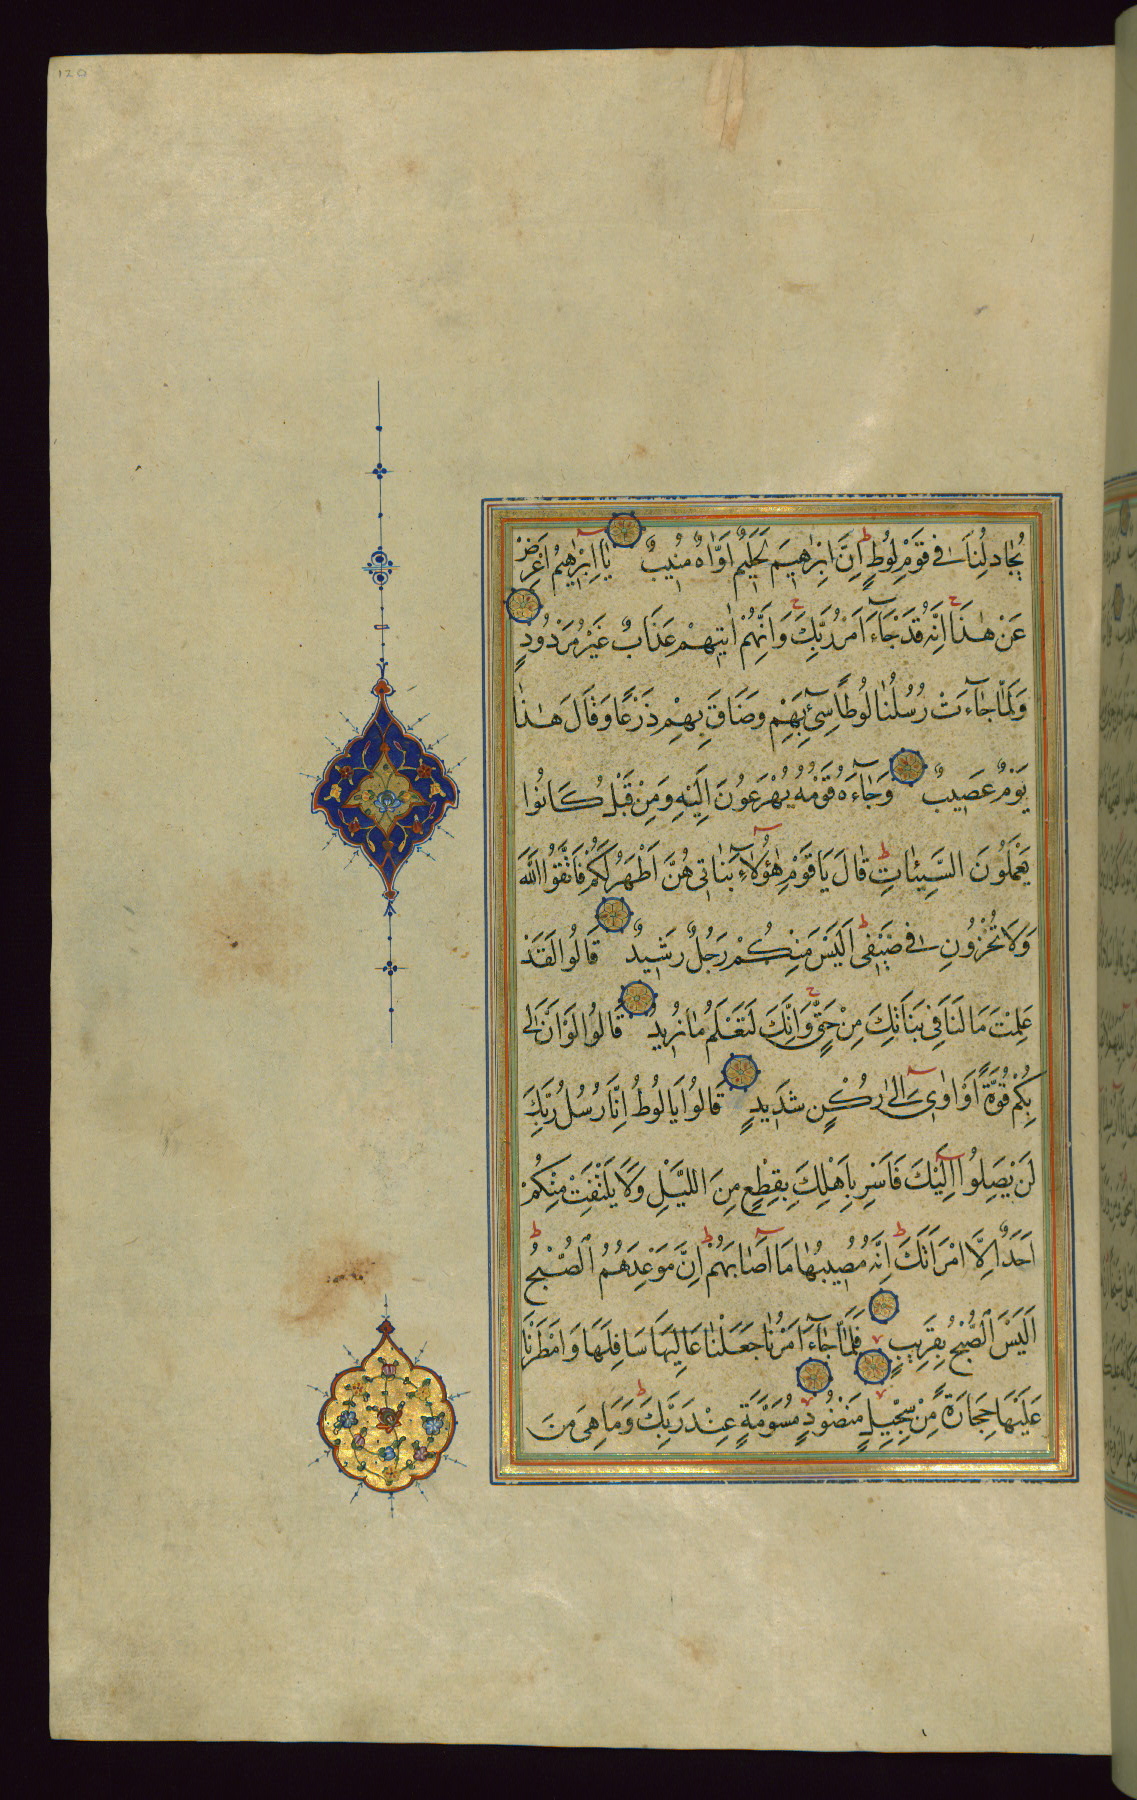 120
يُجَادِلُنَا فِي قَوْمِ لُوطٍ اِنَّ اِبْرٰهِيمَ لَحَلِيمٌ اَوَّاهٌ مُنِيبٌ يَا اِبْرٰهِيمُ اَعْرِضْ
عَنْ هٰذَا اِنَّهُ قَدْ جَاءَ اَمْرُ رَبِّكَ وَاِنَّهُمْ اٰتِيهِمْ عَذَابٌ غَيْرُ مَرْدُودٍ
وَلَمَّا جَاءَتْ رُسُلُنَا لُوطًا سِيءَ بِهِمْ وَضَاقَ بِهِمْ ذَرْعًا وَقَالَ هٰذَا
يَوْمٌ عَصِيبٌ وَجَاءَهُ قَوْمُهُ يُهْرَعُونَ اِلَيْهِ وَمِنْ قَبْلُ كَانُوا
يَعْمَلُونَ السَّيِّئَاتِ قَالَ يَا قَوْمِ هٰؤُلَاءِ بَنَاتِي هُنَّ اَطْهَرُ لَكُمْ فَاتَّقُوا اللّٰهَ
وَلَا تُخْزُونِ فِي ضَيْفِي اَلَيْسَ مِنْكُمْ رَجُلٌ رَشِيدٌ قَالُوا لَقَدْ
عَلِمْتَ مَا لَنَا فِي بَنَاتِكَ مِنْ حَقٍّ وَاِنَّكَ لَتَعْلَمُ مَا نُرِيدُ قَالَ لَوْ اَنَّ لِي
بِكُمْ قُوَّةً اَوْ اٰوِي اِلٰى رُكْنٍ شَدِيدٍ قَالُوا يَا لُوطُ اِنَّا رُسُلُ رَبِّكَ
لَنْ يَصِلُوا اِلَيْكَ فَاَسْرِ بِاَهْلِكَ بِقِطْعٍ مِنَ اللَّيْلِ وَلَا يَلْتَفِتْ مِنْكُمْ
اَحَدٌ اِلَّا امْرَاَتَكَ اِنَّهُ مُصِيبُهَا مَا اَصَابَهُمْ اِنَّ مَوْعِدَهُمُ الصُّبْحُ
اَلَيْسَ الصُّبْحُ بِقَرِيبٍ فَلَمَّا جَاءَ اَمْرُنَا جَعَلْنَا عَالِيَهَا سَافِلَهَا وَاَمْطَرْنَا
عَلَيْهَا حِجَارَةً مِنْ سِجِّيلٍ مَنْضُودٍ مُسَوَّمَةً عِنْدَ رَبِّكَ وَمَا هِيَ مِنَ